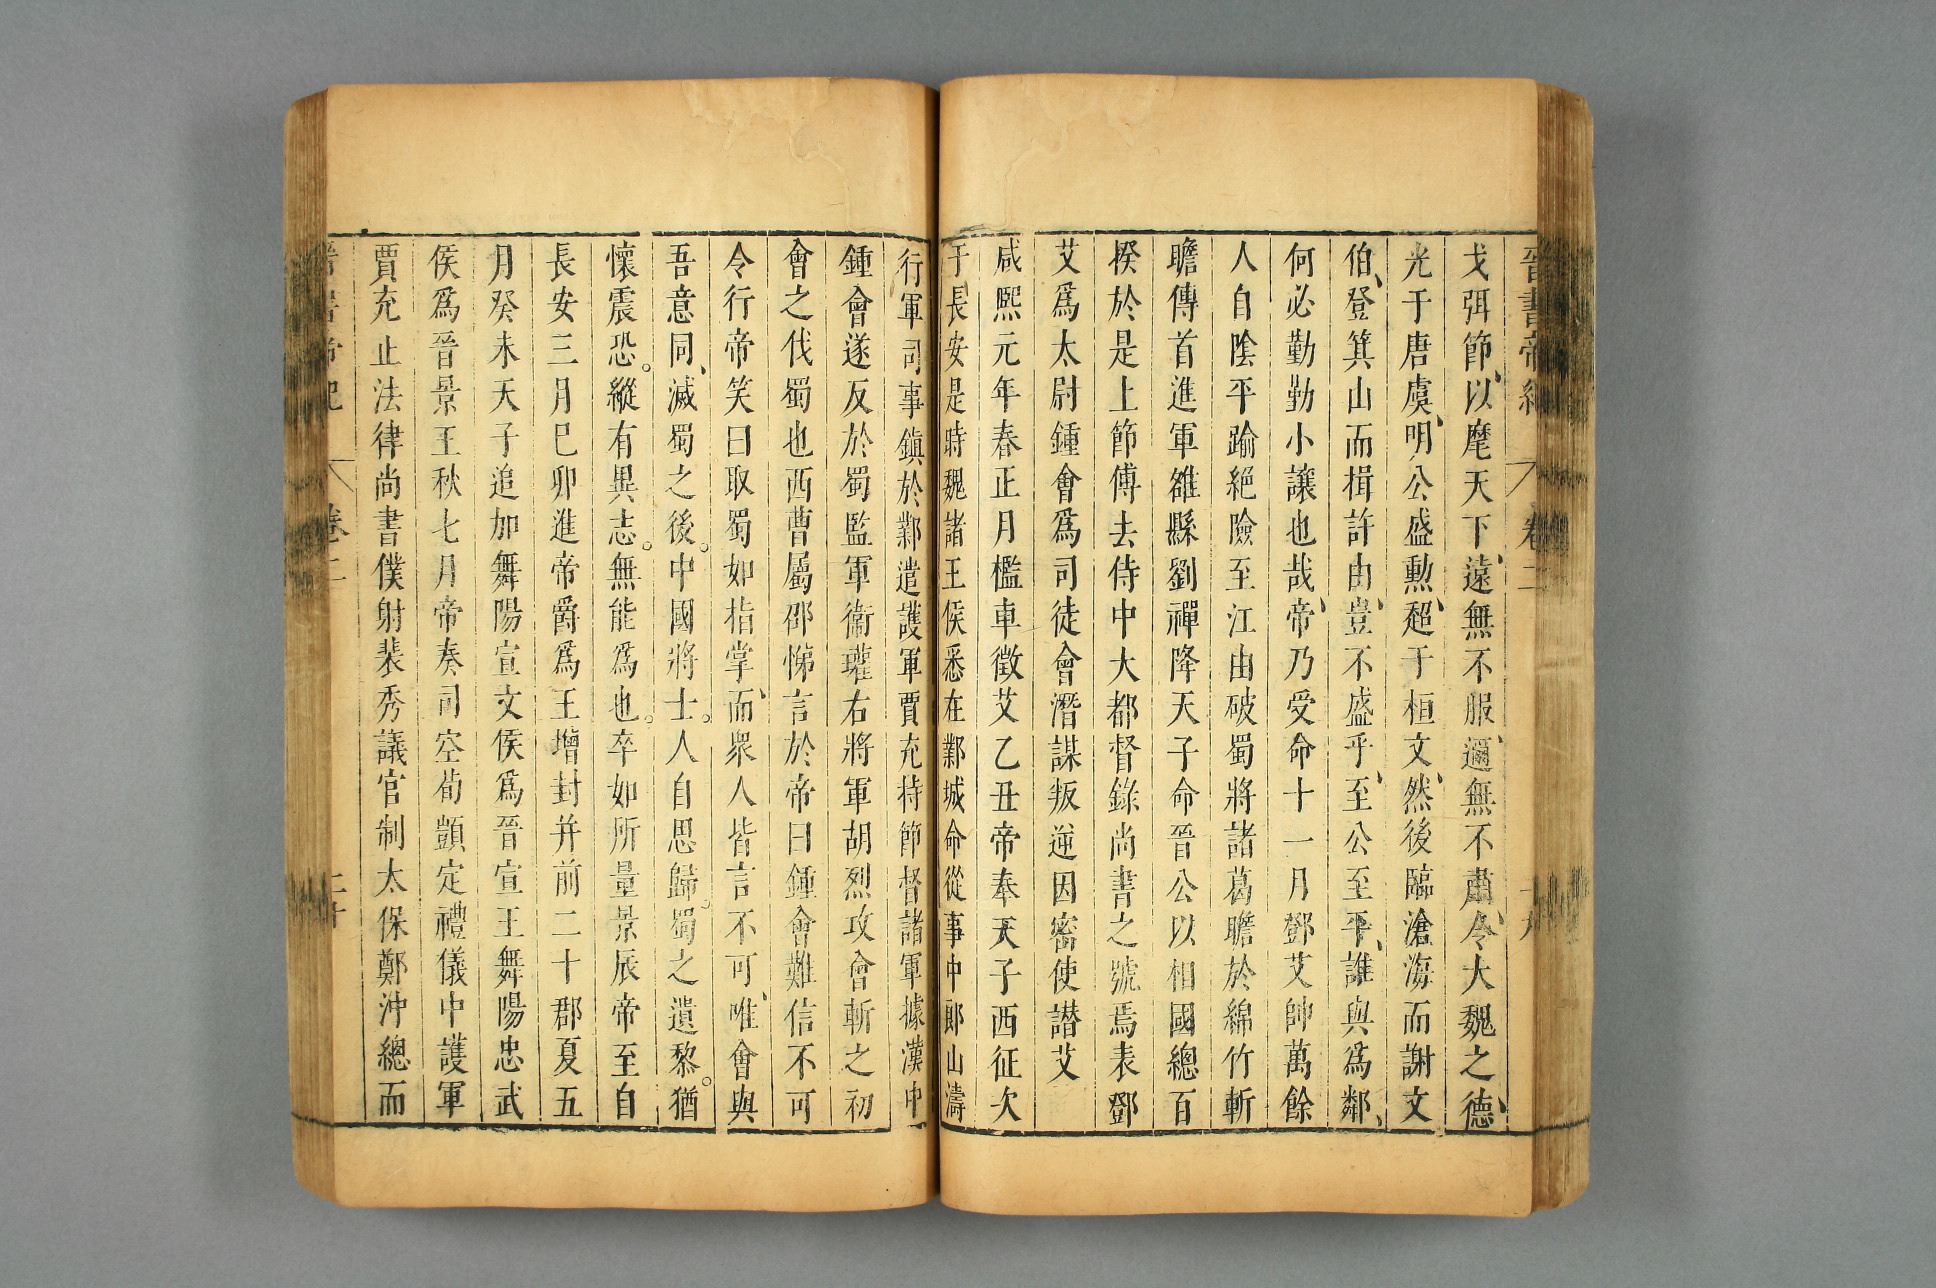 晉書帝紀 卷二
戈弭節、以麾天下、遠無不服、邇無不肅、令大魏之德、
光于唐虞、明公盛勲、超于桓文、然後臨滄海而謝文
伯、登箕山而揖許由、豈不盛乎、至公至平、誰與爲鄰、
何必勤勤小讓也哉、帝乃受命十一月鄧艾帥萬餘
人自陰平踰絕險至江由破蜀將諸葛瞻於綿竹斬
瞻傳首進軍雒縣劉禪降天子命晉公以相國總百
揆於是上節傅去侍中大都督錄尚書之號焉表鄧
艾爲太尉鍾會爲司徒會潛謀叛逆因密使譖艾
咸熙元年春正月檻車徵艾乙丑帝奉天子西征次
于長安是時魏諸王侯悉在鄴城命從事中郎山濤
行軍司事鎮於鄴遣護軍賈充持節督諸軍據漢中
鍾會遂反於蜀監軍衞瓘右將軍胡烈攻會斬之初
會之伐蜀也西曹屬邵悌言於帝曰鍾會難信不可
令行帝笑曰取蜀如指掌、而衆人皆言不可、唯會與
吾意同、滅蜀之後。中國將士。人自思歸。蜀之遺黎。猶
懷震恐。縱有異志。無能爲也。卒如所量景辰帝至自
長安三月己卯進帝爵爲王增封并前二十郡夏五
月癸未天子追加舞陽宣文侯爲晉宣王舞陽忠武
侯爲晉景王秋七月帝奏司空荀顗定禮儀中護軍
賈充正法律尚書僕射裴秀議官制太保鄭沖總而
晉書帝紀 卷二 二十